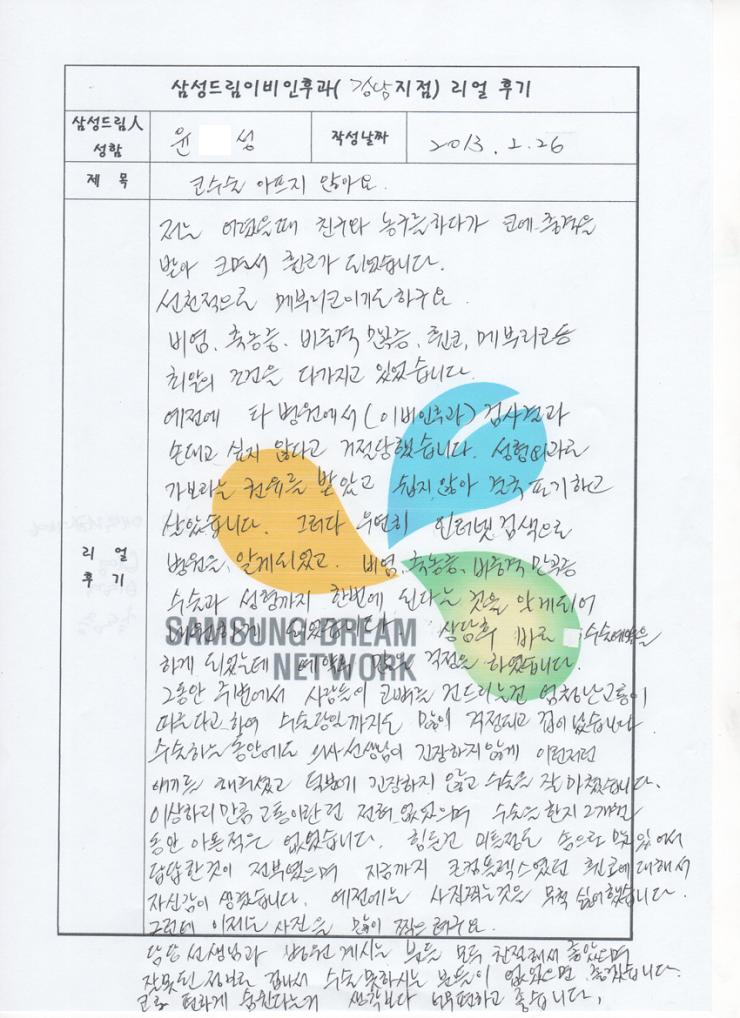 삼성드림이비인후과( 강남지점) 리얼 후기
삼성드림人 성함
윤 성
작성날짜
2013. 2. 26
제 목
코수술 아프지 않아요.
리 얼
후 기
저는 어렸을때 친구와 농구를하다가 코에 충격을
받아 크면서 휜코가 되었습니다.
선천적으로 메부리코이기도하구요.
비염, 축농증, 비중격 만곡증, 휜코, 메부리코등
최악의 조건을 다가지고 있었습니다.
예전에 타 병원에서(이비인후과) 검사결과
손대고 싶지 않다고 거절당했습니다. 성형외과로
가보라는 권유를 받았고 쉽지않아 결국 포기하고
살았습니다. 그러다 우연히 인터넷 검색으로
병원을 알게되었고. 비염, 축농증, 비중격 만곡증
수술과 성형까지 한번에 된다는 것을 알게되어
되었습니다. 상담후 바로 수술예약을
하게 되었는데 걱정을 하였답니다.
SAMSUNG DREAM
NETWORK
그동안 주변에서 사람들이 코뼈를 건드리는건 엄청난고통이
따른다고하여 수술당일까지도 많이 걱정되고 겁이났습니다
수술하는 동안에도 의사선생님이 긴장하지않게 이런저런
얘기를 해주셨고 덕분에 긴장하지 않고 수술을 잘 마쳤습니다.
이상하리 만큼 고통이란건 전혀 없었으며 수술을한지 2개월
동안 아픈적은 없었습니다. 힘든건 이틀정도 솜으로 막혀있어서
답답한것이 전부였으며 지금까지 콤플렉스였던 휜코에대해서
자신감이 생겼습니다. 예전에는 사진찍는것을 무척 싫어했습니다.
그런데 이제는 사진을 많이 찍으려구요
담당 선생님과 병원 계시는 분들 모두 친절해서 좋았으며
잘못된 정보로 겁나서 수술못하시는 분들이 없었으면 좋겠습니다.
코로 편하게 숨쉰다는게 생각보다 너무편하고 좋습니다.